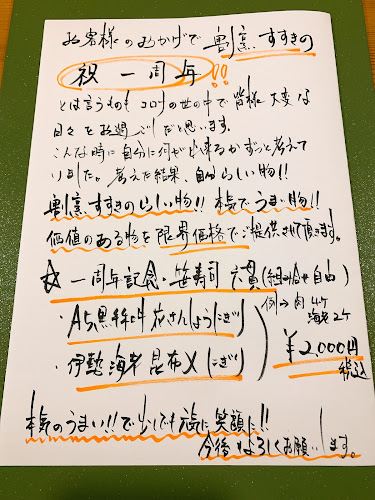 お客様のおかげで 割烹 すすきの
祝 一周年!!
とは言うもの コロナの世の中で皆様 大変な
日々をお過ごしだと思います。
こんな時に自分に何が出来るかずっと考えて
いました。考えた結果、自分らしい物!!
割烹すすきのらしい物!! 本気でうまい物!!
価値のある物を限界価格でご提供させて頂きます。
☆ 一周年記念・笹寿司 六貫(組み合せ自由)
例→肉4ケ
海老2ケ
・A5黒毛和牛 花さんしょう(にぎり)
・伊勢海老 昆布〆(にぎり)
¥2,000円
税込
本気のうまい!!で少しでも元気に笑顔に!!
今後もよろしくお願いします。